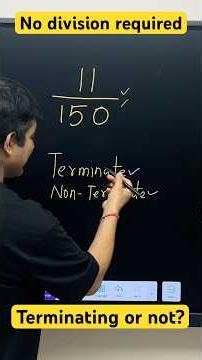 No division required
11
150
Terminate
Non-Terminate
Terminating or not?